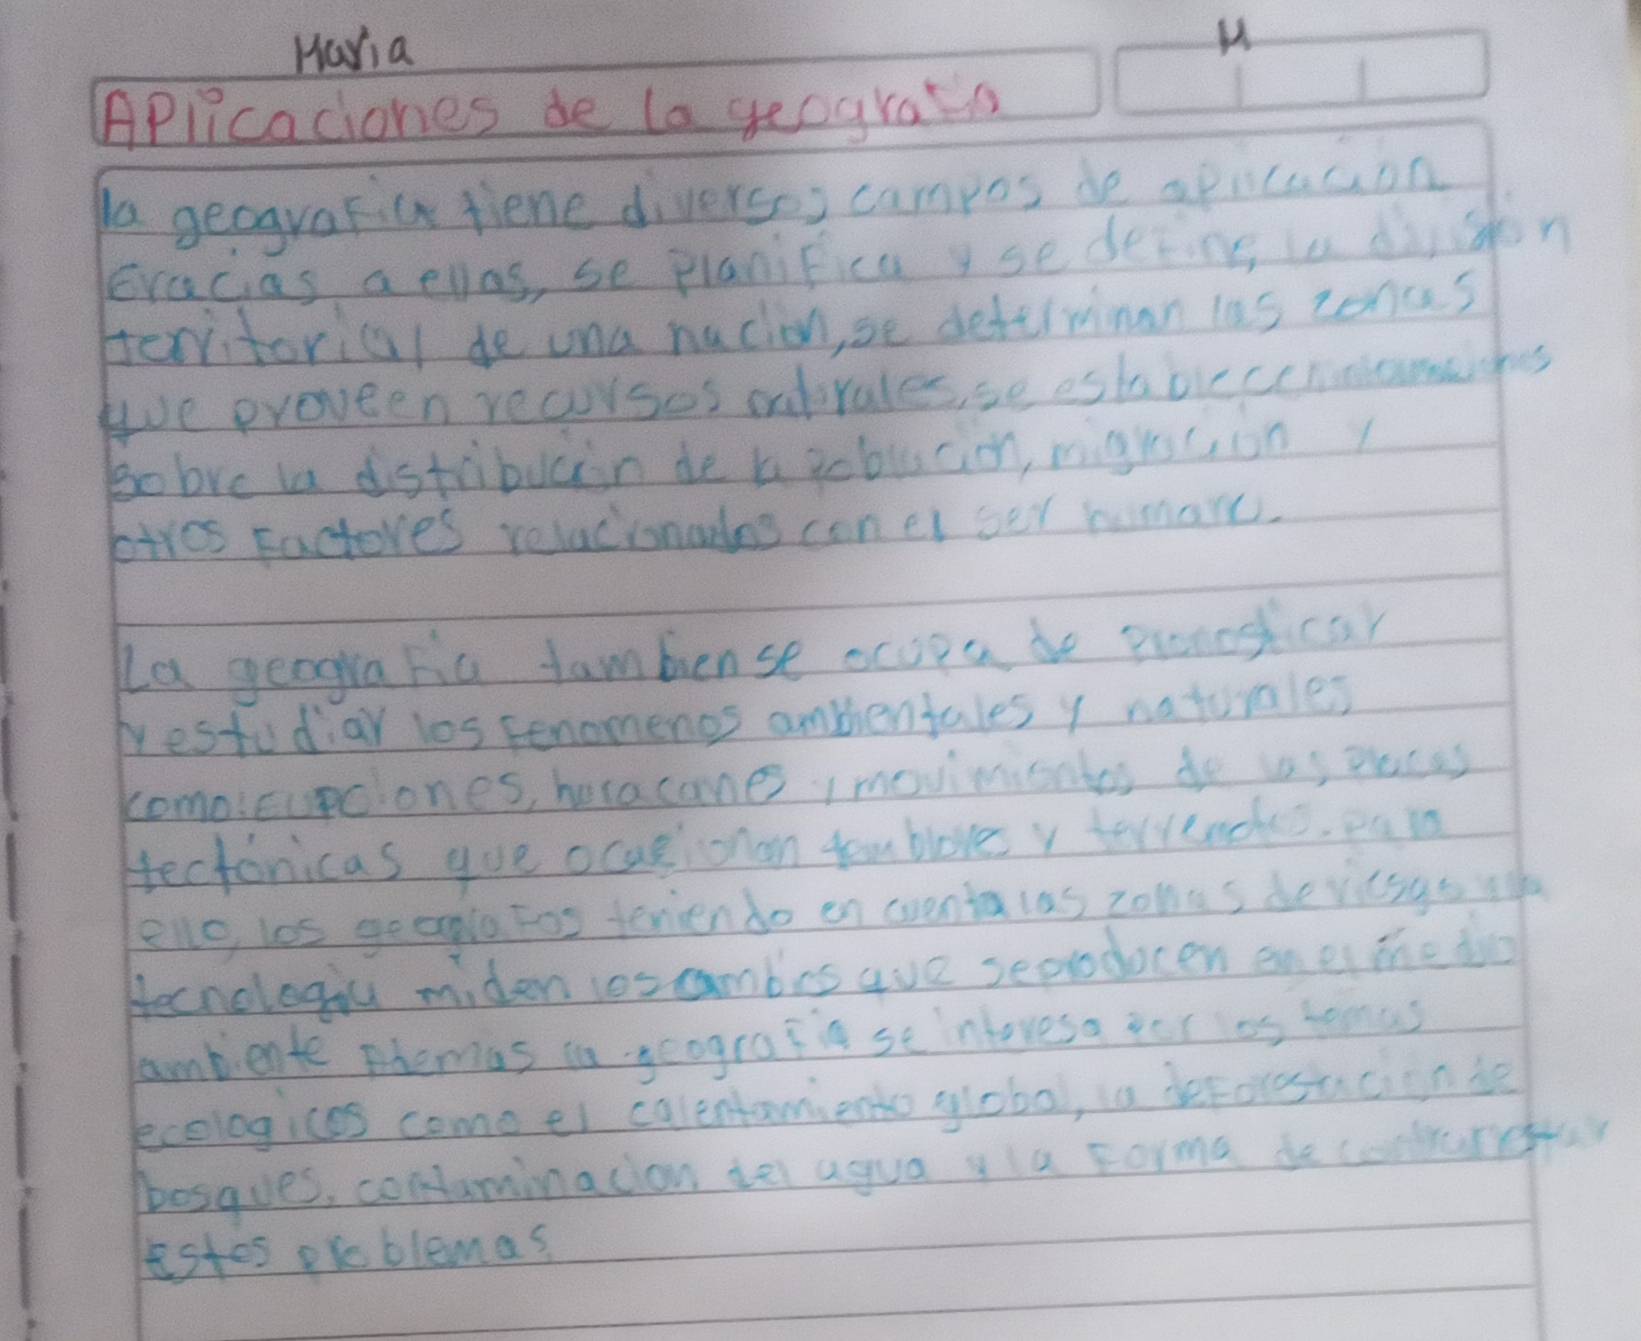 Maria
M
Aplicaciones de la geografia
la geografia tiene diversos campos de aplicacion
Gracias a ellas, se planifica y se define, la division
territorial de una nacion, se determinan las zonas
que proveen recursos naturales, se establecen
sobre la distribucion de la poblacion, migracion y
otros factores relacionados con el ser humano.
La geografia tambien se ocupa de pronosticar
y estudiar los fenomenos ambientales y naturales
como: Eupciones, huracanes, movimientos de las placas
tectónicas que ocasionan temblores y terremotos. para
ello, los geografos teniendo en cuenta las zonas de riesgos
tecnologia miden los cambios que se producen en el medio
ambiente ademas la geografia se interesa por los temas
ecologicos como el calentamiento global, la deforestacion de
bosques, contaminacion del agua y la forma de contrarrestar
Estos problemas